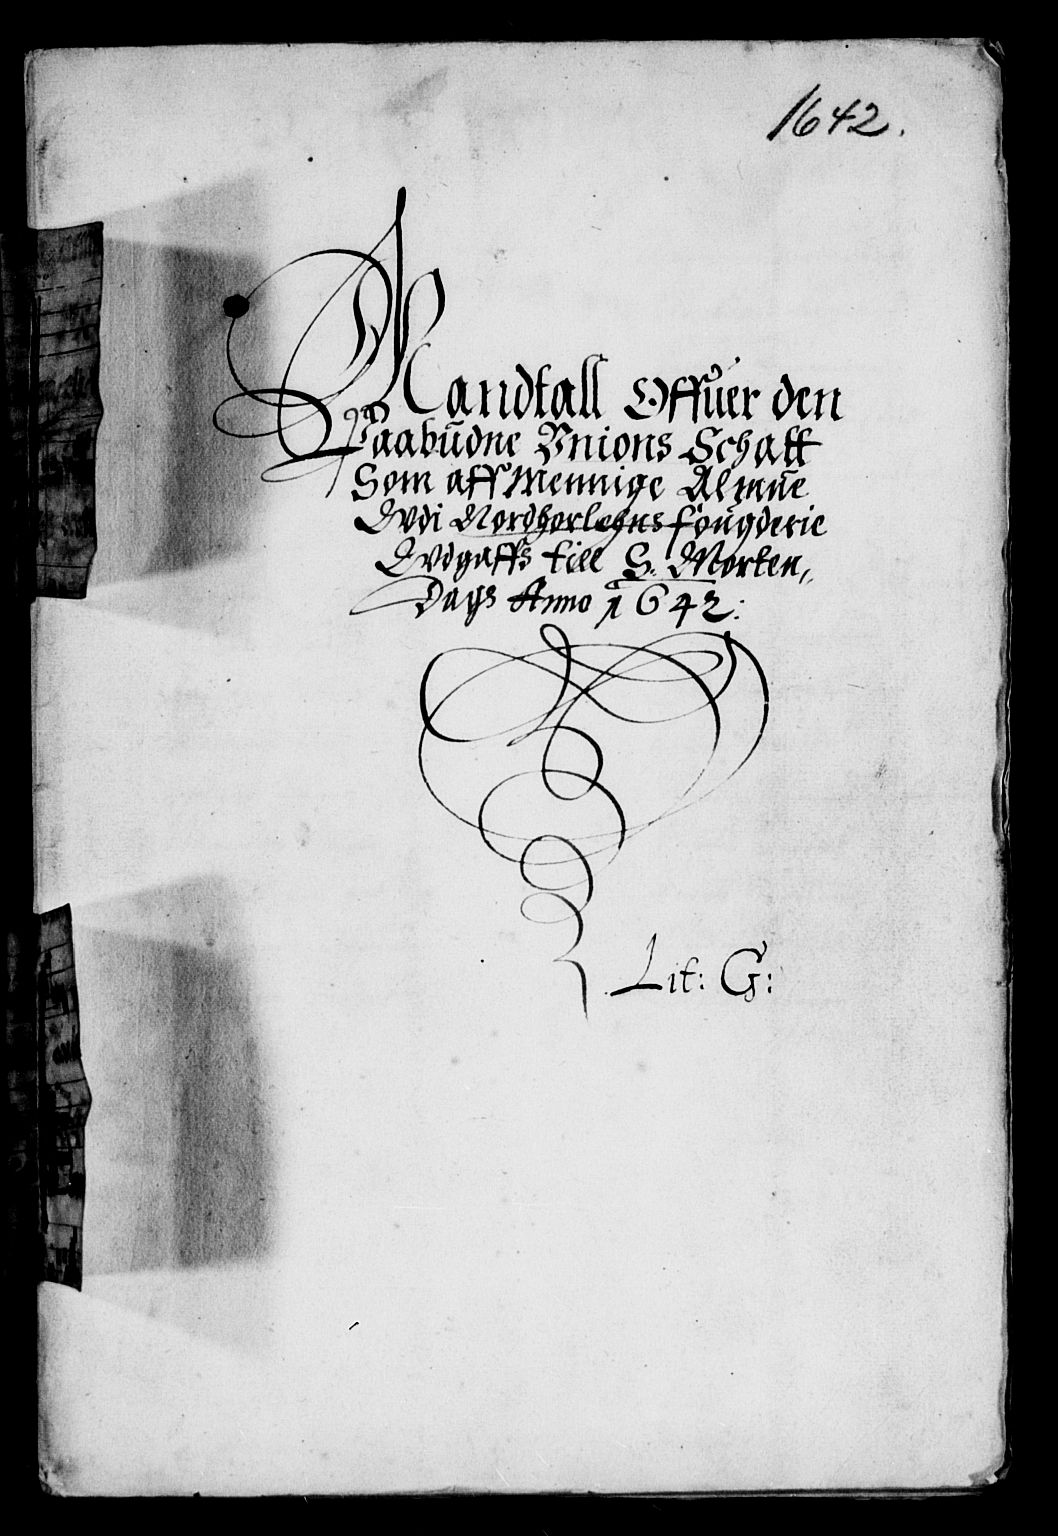 1642.
Mandtall Offuer den
Paabudne Vnions Schatt
Som aff Mennige Almue
Vdi Nordhorlehns fougderie
Vdgaffs till S. Morten,,
Dags Anno 1642:
Lit: G: